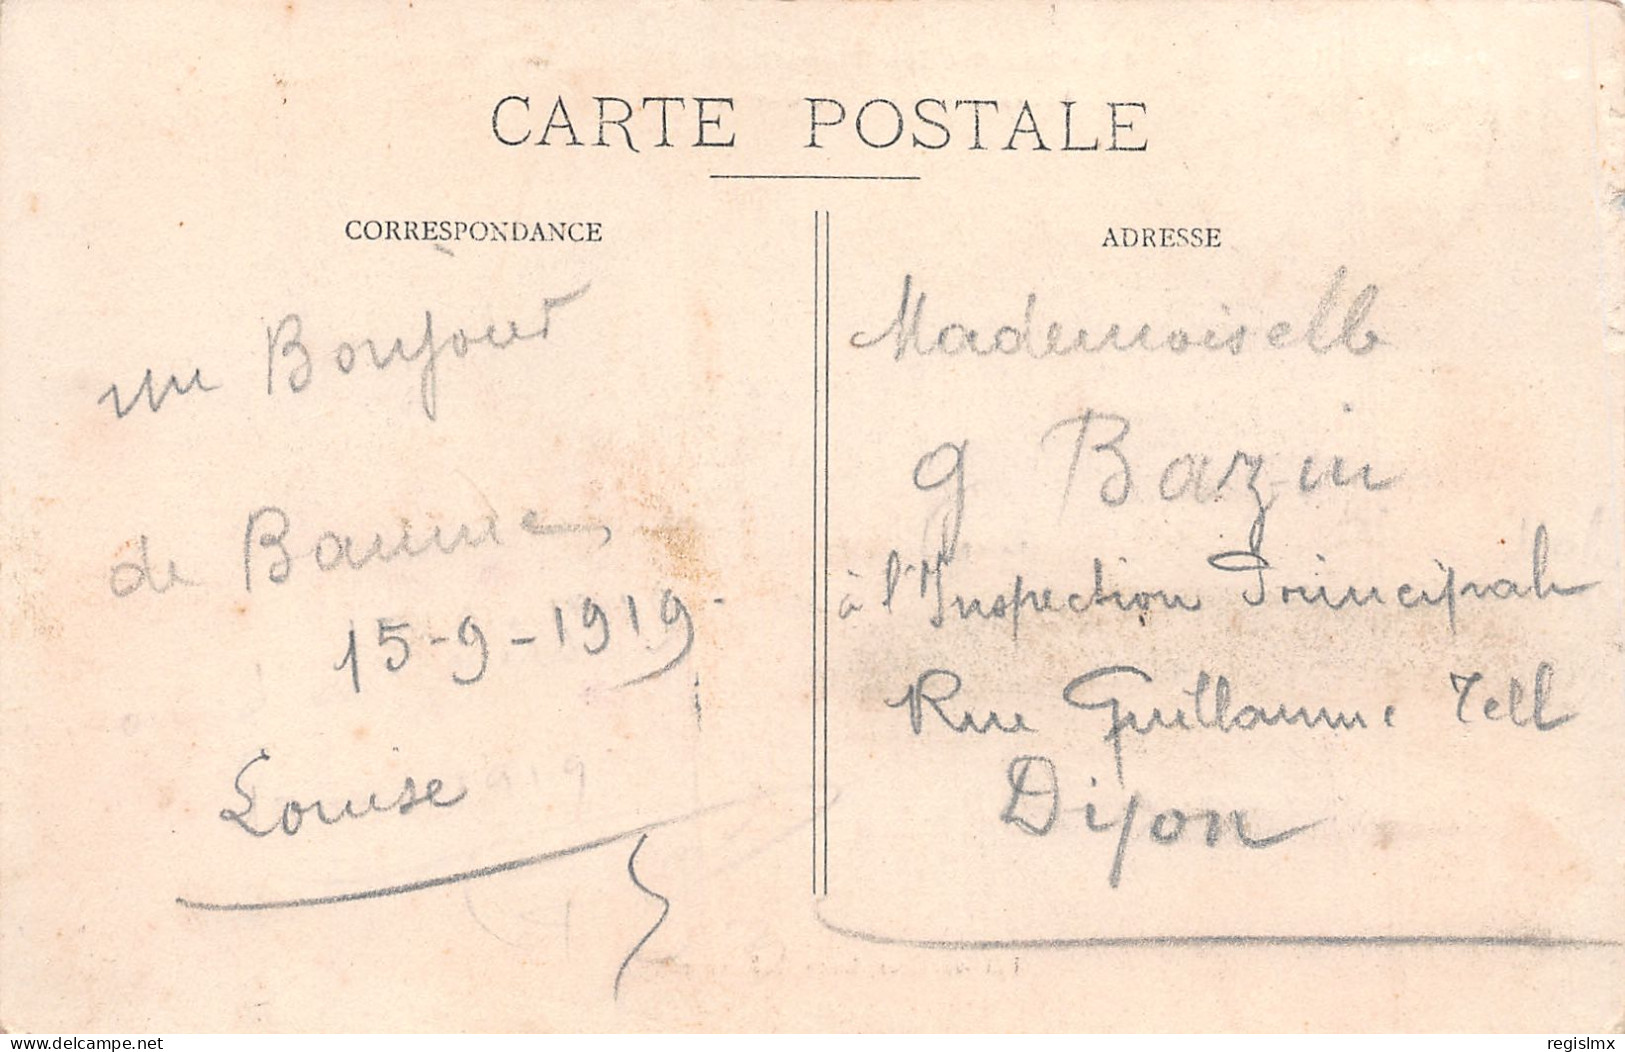 CARTE POSTALE
CORRESPONDANCE
un Bonjour
de Baume
15-9-1919.
Louise
ADRESSE
Mademoiselle
G Bazin
à l'Inspection Principale
Rue Guillaume Tell
Dijon
delcampe.net
regislmx